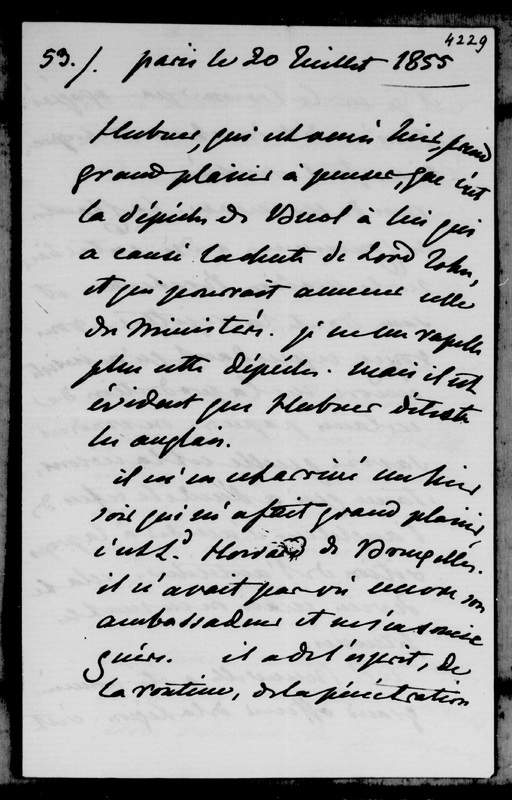 4229
53./. paris le 20 Juillet 1855
Hubner, qui est venu hier, prend
grand plaisir à penser, que c'est
la dépêche de Buol à lui qui
a causé la chute de Lord John,
et qui pourrait amener celle
du Ministère. je ne me rapelle
plus cette dépêche. mais il est
évident que Hubner déteste
les anglais.
il m'en est arrivé un hier
soir qui m'a fait grand plaisir,
c'est Ld. Howard de Bruxelles.
il n'avait pas vu encore son
ambassadeur et ne s'en soucie
guères. il a de l'esprit, de
la routine, de la pénétration